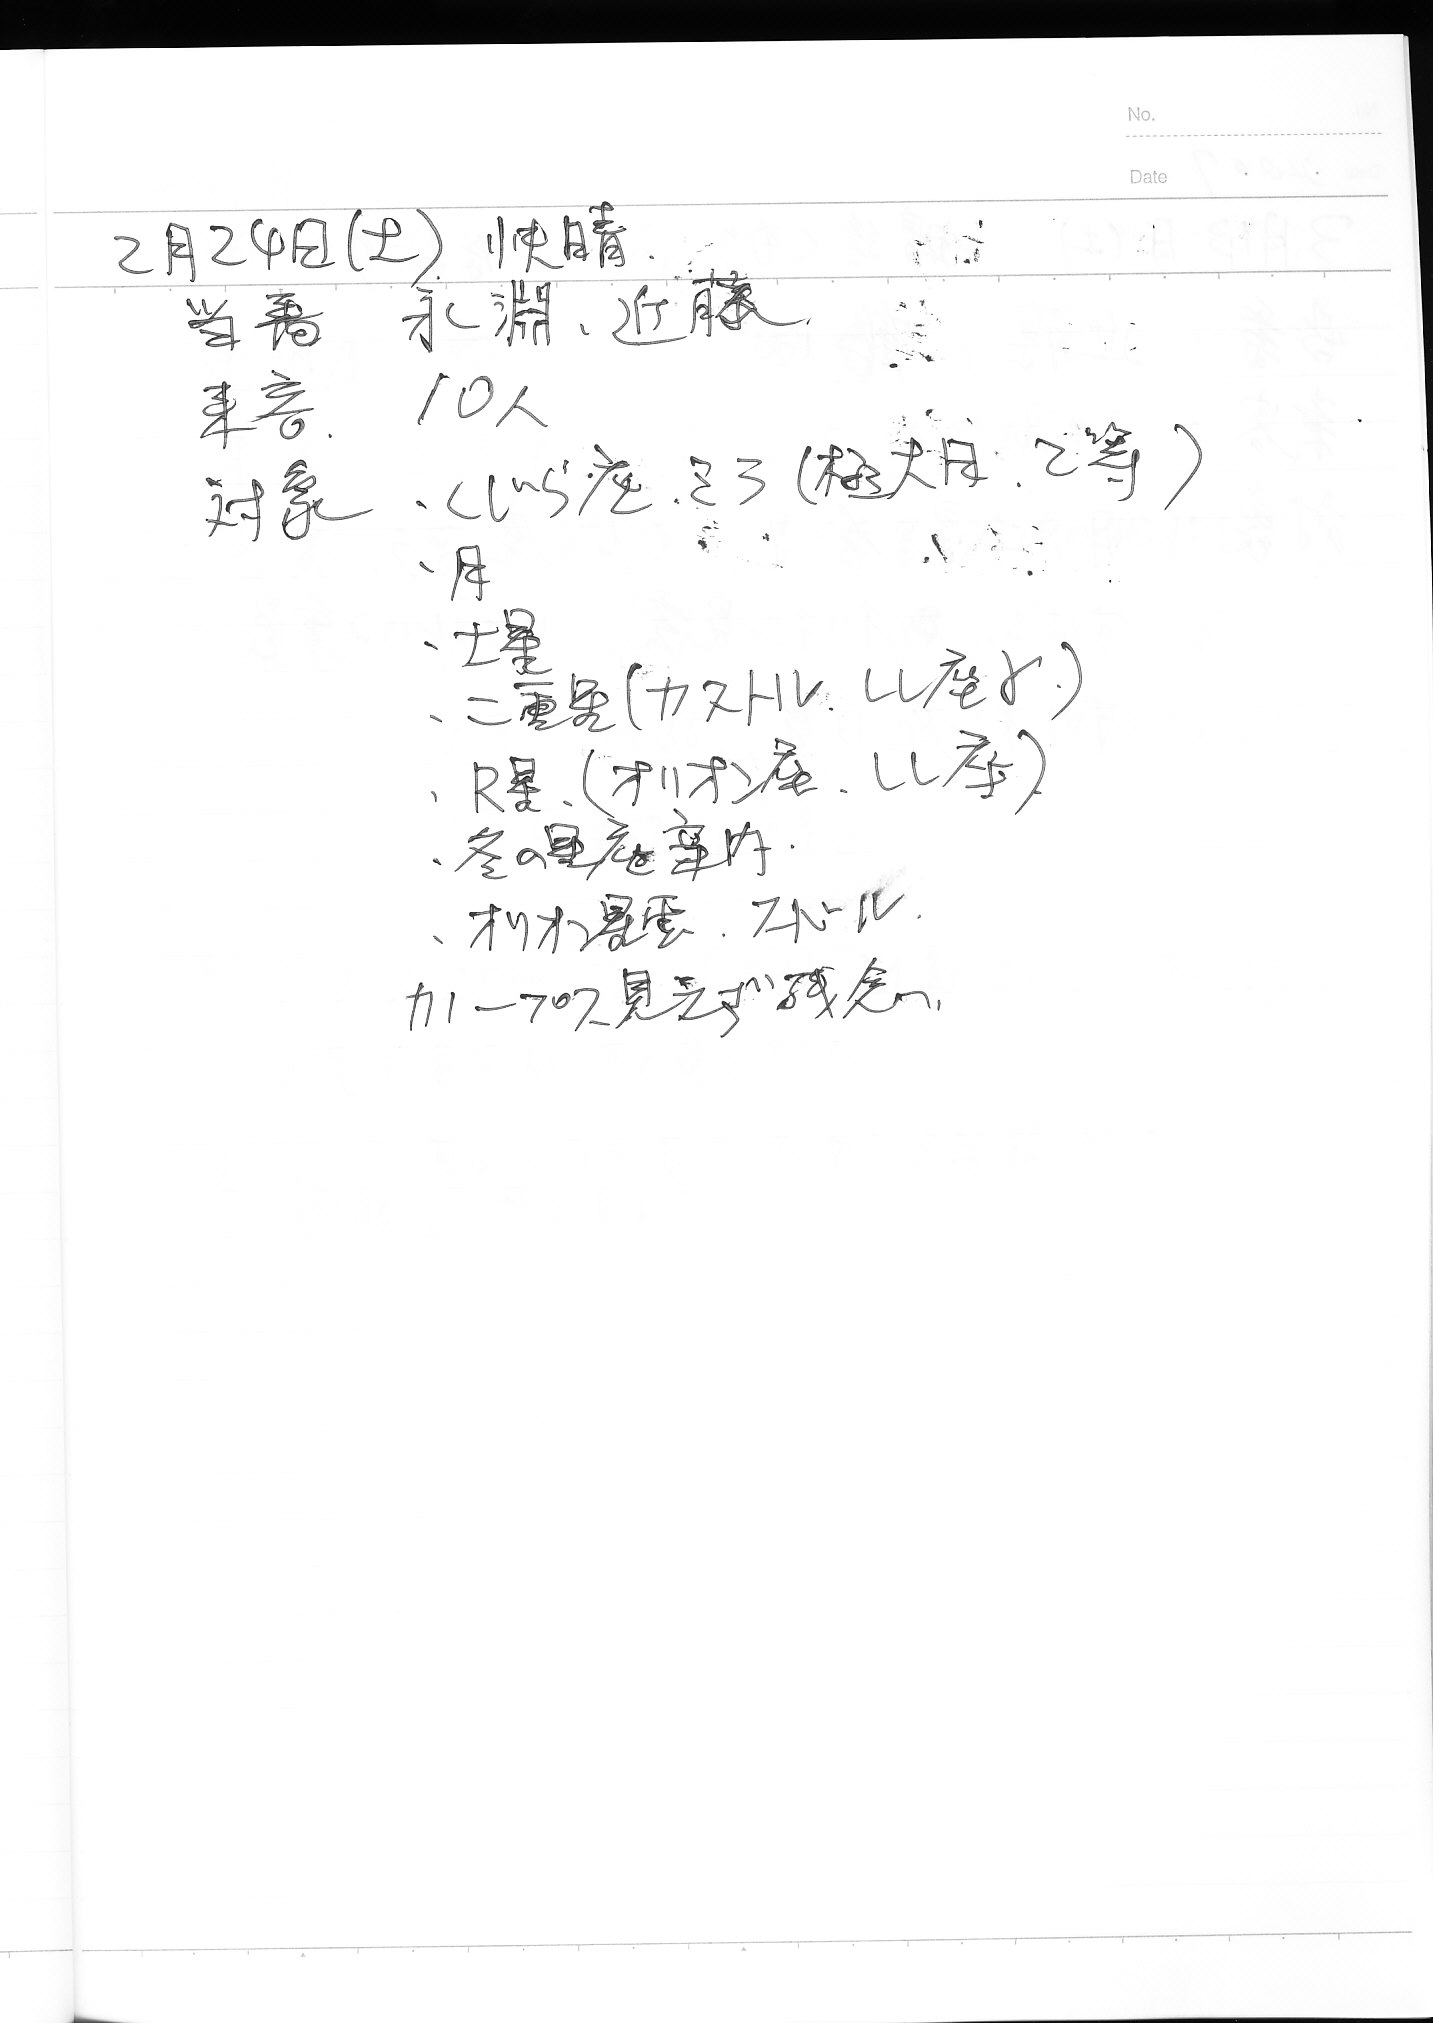 No.
Date
2月24日(土) 快晴.
当番 永淵、近藤.
来客. 10人
対象 ・くじら座.ミラ(極大月.2等)
・月
・土星
・二重星(カストル.しし座γ.)
・R星.(オリオン座.しし座)
・冬の星座案内.
・オリオン星雲.スバル.
カノープス見えず残念へ.